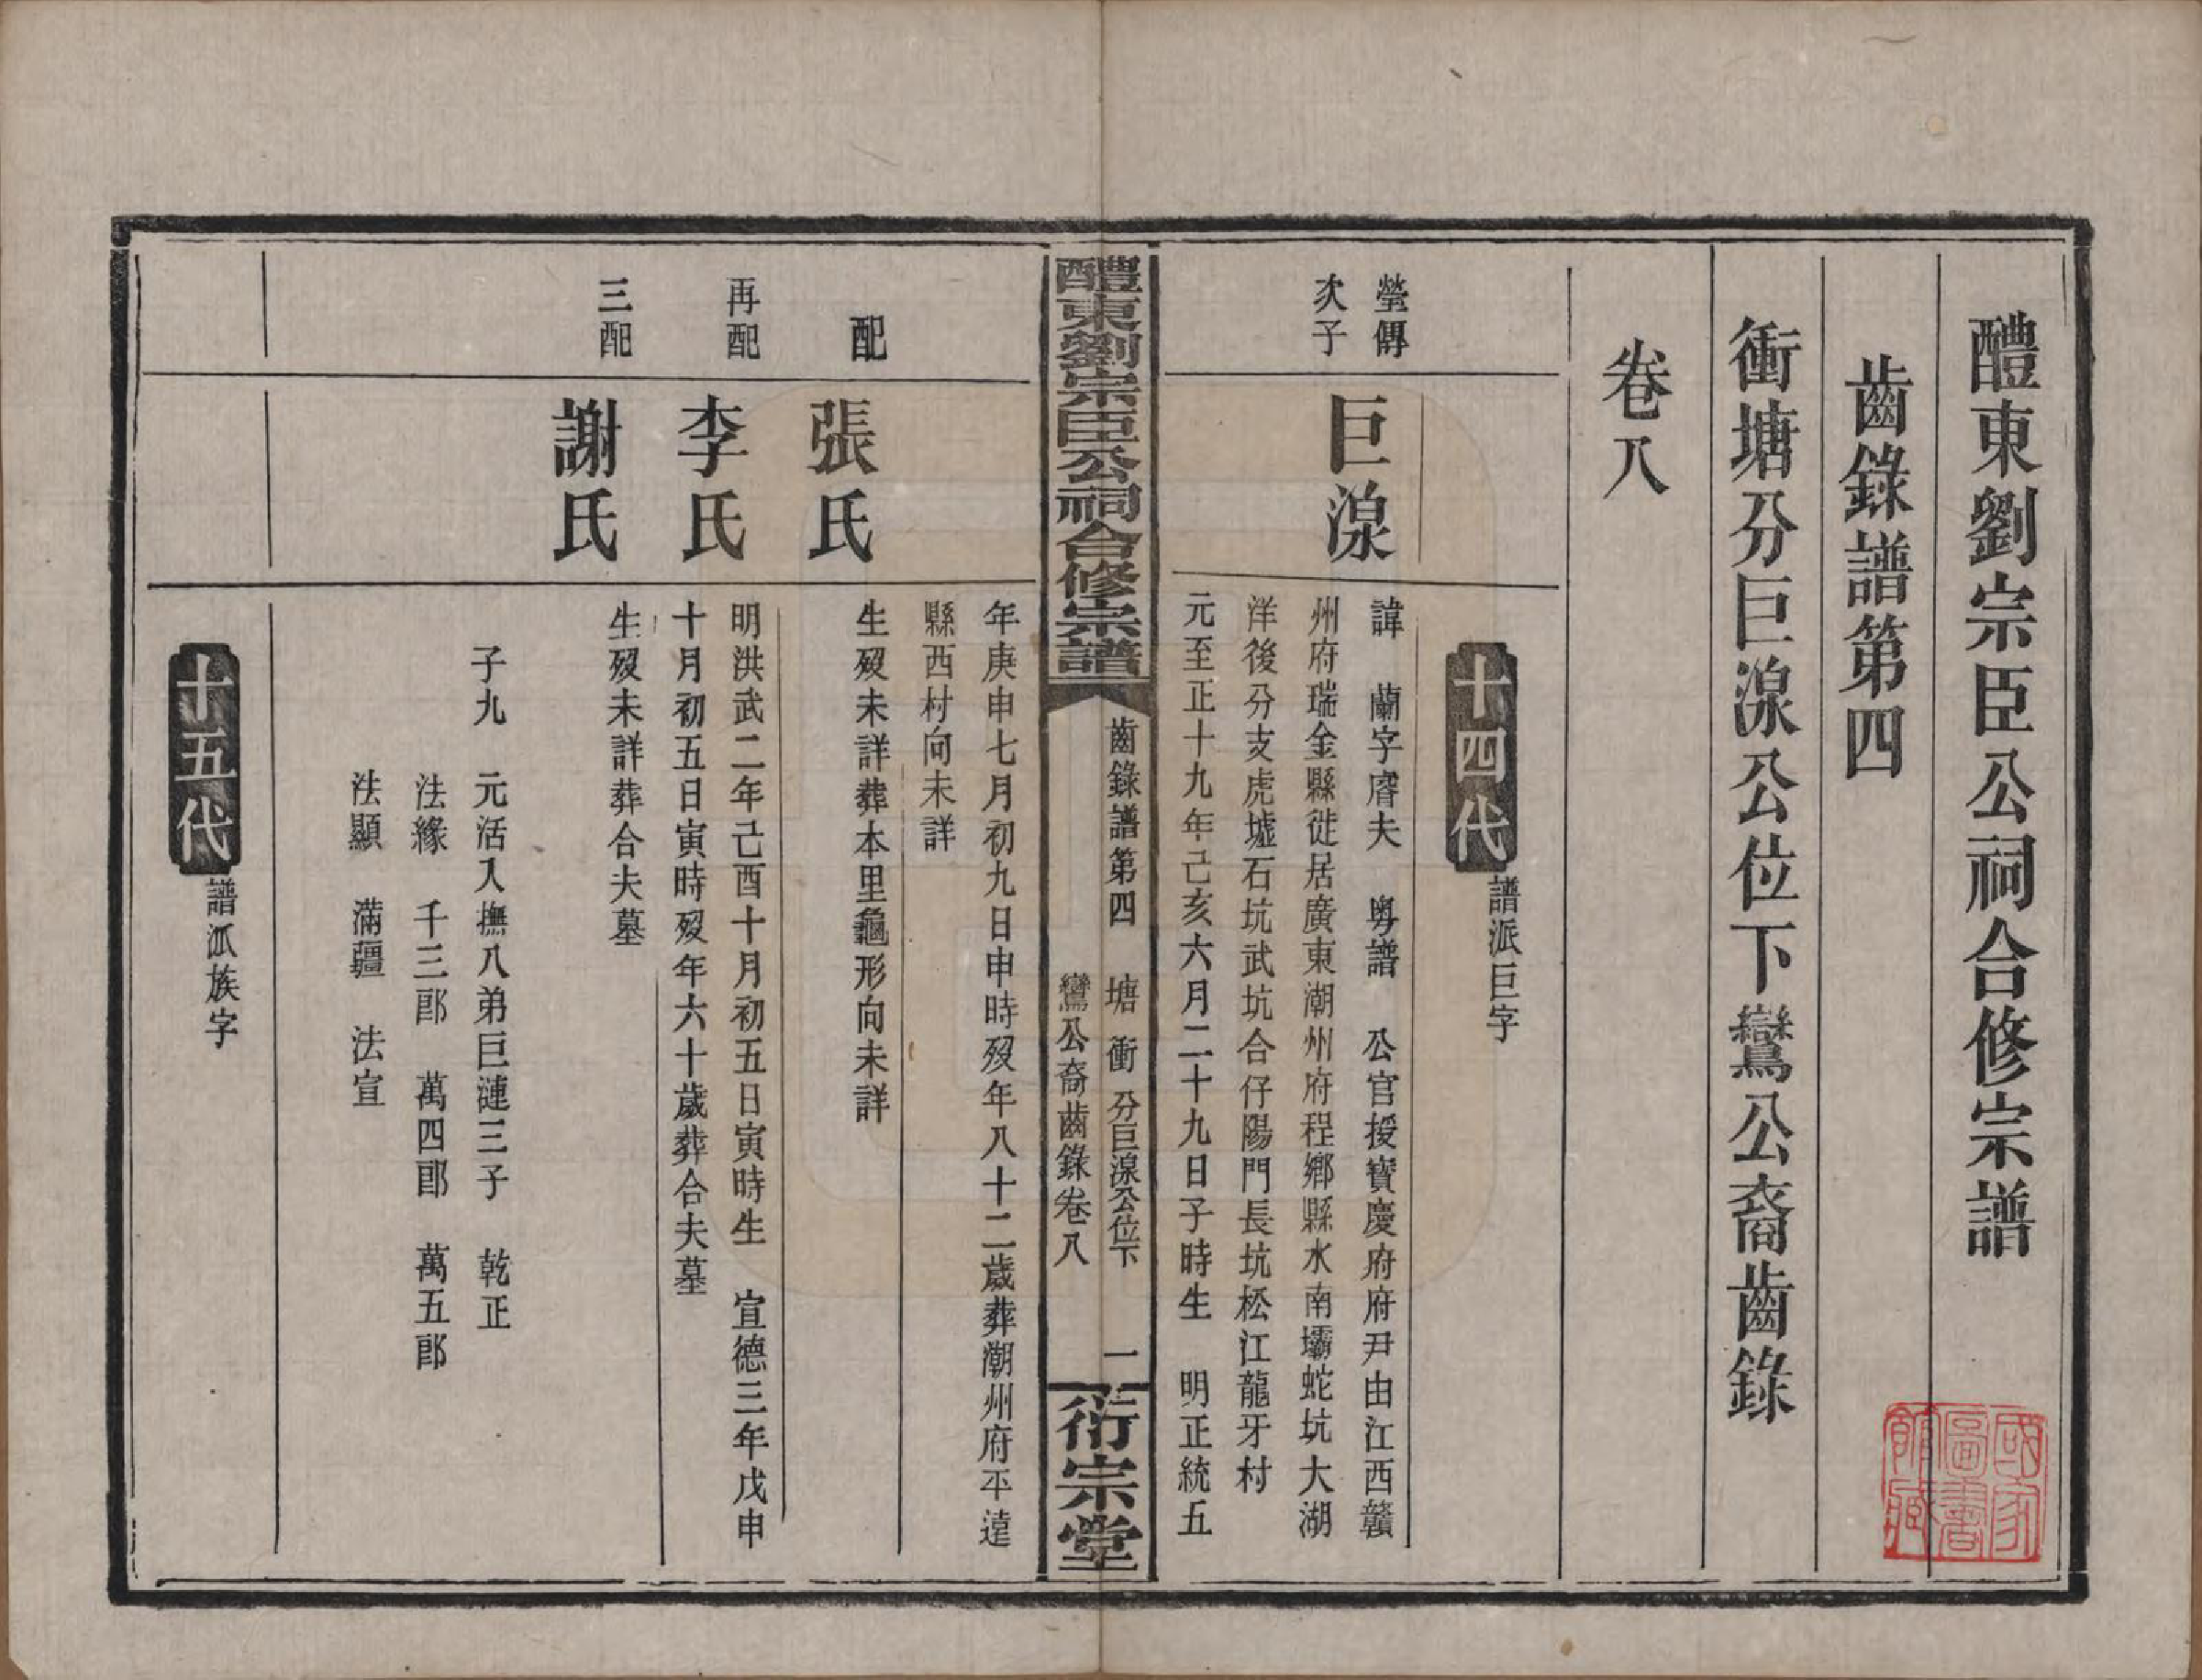 醴東劉宗臣公祠合修宗譜
齒錄譜第四
衝塘分巨湶公位下鸞公裔齒錄
卷八
國家圖書館藏
十四代
譜派巨字
瑩傳
次子
巨湶
諱　蘭字膺夫　粵譜　公官授寶慶府府尹由江西贛
州府瑞金縣徙居廣東潮州府程鄉縣水南壩蛇坑大湖
洋後分支虎墟石坑武坑合仔陽門長坑松江龍牙村
元至正十九年己亥六月二十九日子時生　明正統五
醴東劉宗臣公祠合修宗譜
齒錄譜第四　塘衝　分巨湶公位下
鸞公裔齒錄卷八
一
衍宗堂
年庚申七月初九日申時歿年八十二歲葬潮州府平遠
縣西村向未詳
配
張氏
生歿未詳葬本里龜形向未詳
再配
李氏
明洪武二年己酉十月初五日寅時生　宣德三年戊申
十月初五日寅時歿年六十歲葬合夫墓
三配
謝氏
生歿未詳葬合夫墓
子九　元活入撫八弟巨漣三子　乾正
法緣　千三郎　萬四郎　萬五郎
法顯　滿疆　法宣
十五代
譜派族字